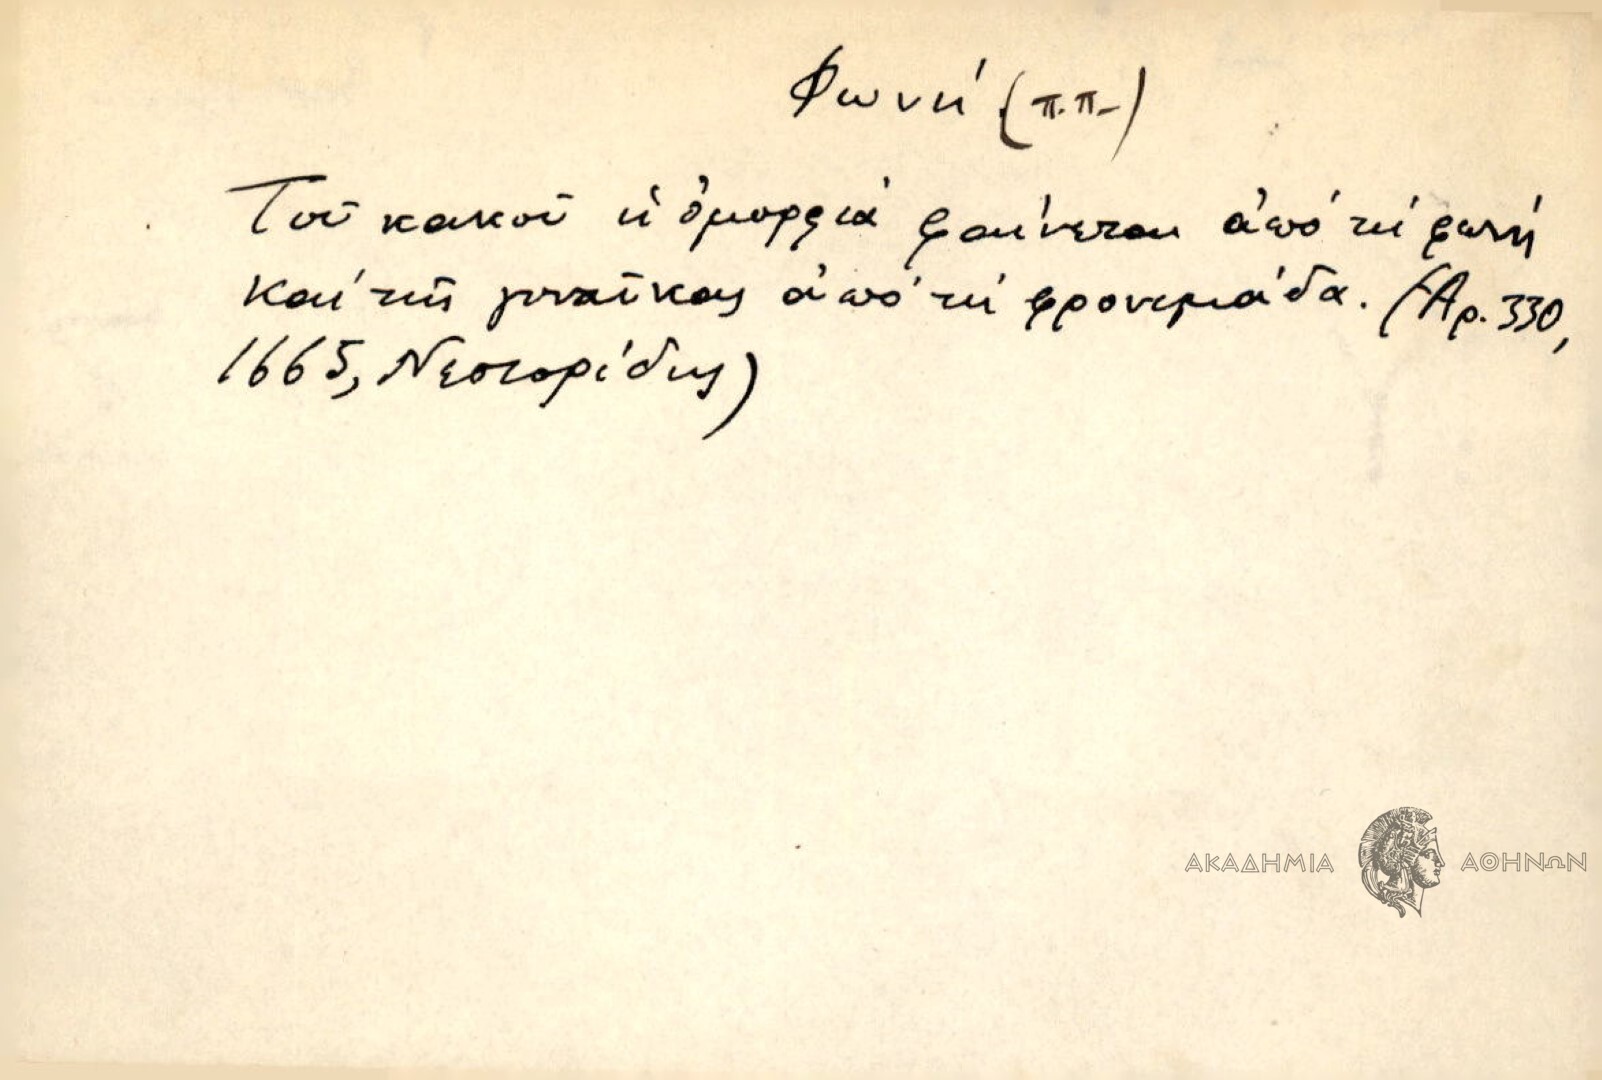 Φωνή (π.π.)
Τοῦ κακοῦ ἡ ὀμορφιά φαίνεται ἀπό τή φωνή
καί τῆς γυναῖκας ἀπό τή φρονιμιάδα. (Ἀρ. 330,
1665, Νεστορίδης)
ΑΚΑΔΗΜΙΑ ΑΘΗΝΩΝ